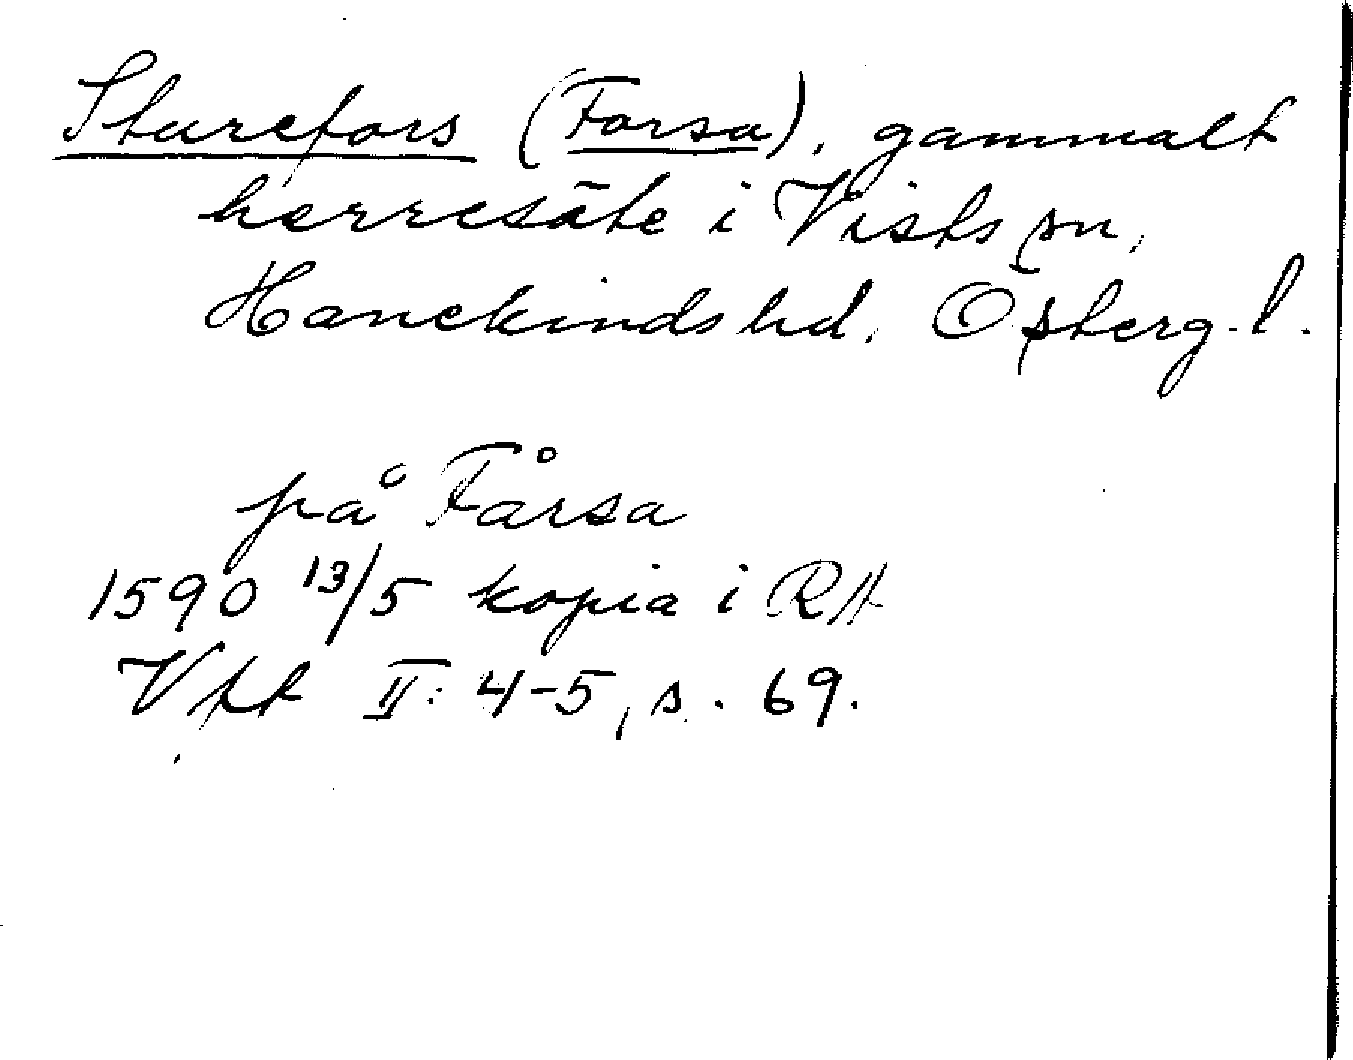 Sturefors (Forsa), gammalt
herresäte i Vists sn,
Hanekinds hd, Österg. l.
på Fårsa
1590 13/5 kopia i RA
Vft II: 4-5, s. 69.